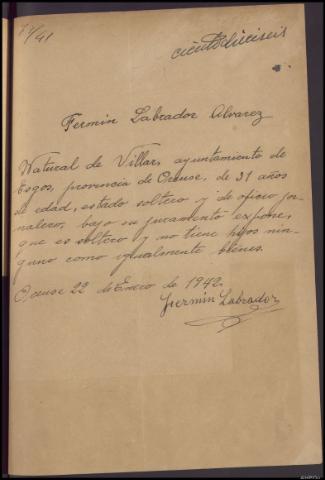 74/41
ciento dieciseis
Fermín Labrador Alvarez
Natural de Villar, ayuntamiento de
Esgos, provincia de Orense, de 31 años
de edad, estado soltero y de oficio jor-
nalero, bajo su juramento expone,
que es soltero y no tiene hijos nin-
guno como igualmente bienes.
Orense 22 de Enero de 1942.
Fermin Labrador